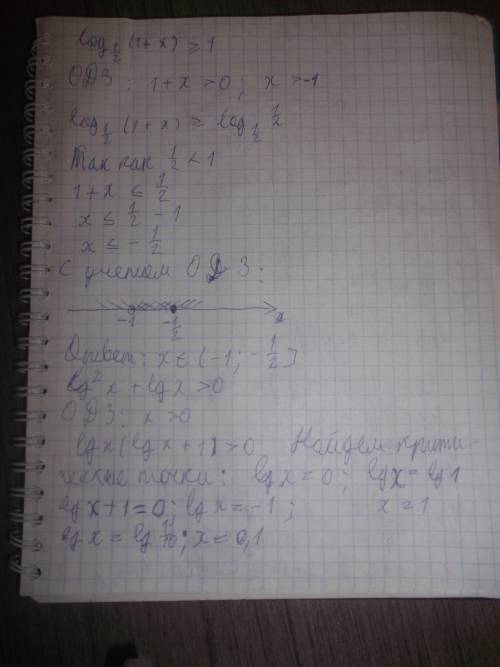 log_{1/2} (1+x) ≥ 1
ОДЗ: 1+x > 0; x > -1
log_{1/2} (1+x) ≥ log_{1/2} 1/2
Так как 1/2 < 1
1+x ≤ 1/2
x ≤ 1/2 - 1
x ≤ - 1/2
С учетом ОДЗ:
-1 -1/2 x
Ответ: x ∈ (-1; -1/2]
lg² x + lg x > 0
ОДЗ: x > 0
lg x (lg x + 1) > 0 Найдем крити-
ческие точки: lg x = 0; lg x = lg 1
lg x + 1 = 0; lg x = -1; x = 1
lg x = lg 1/10; x = 0,1